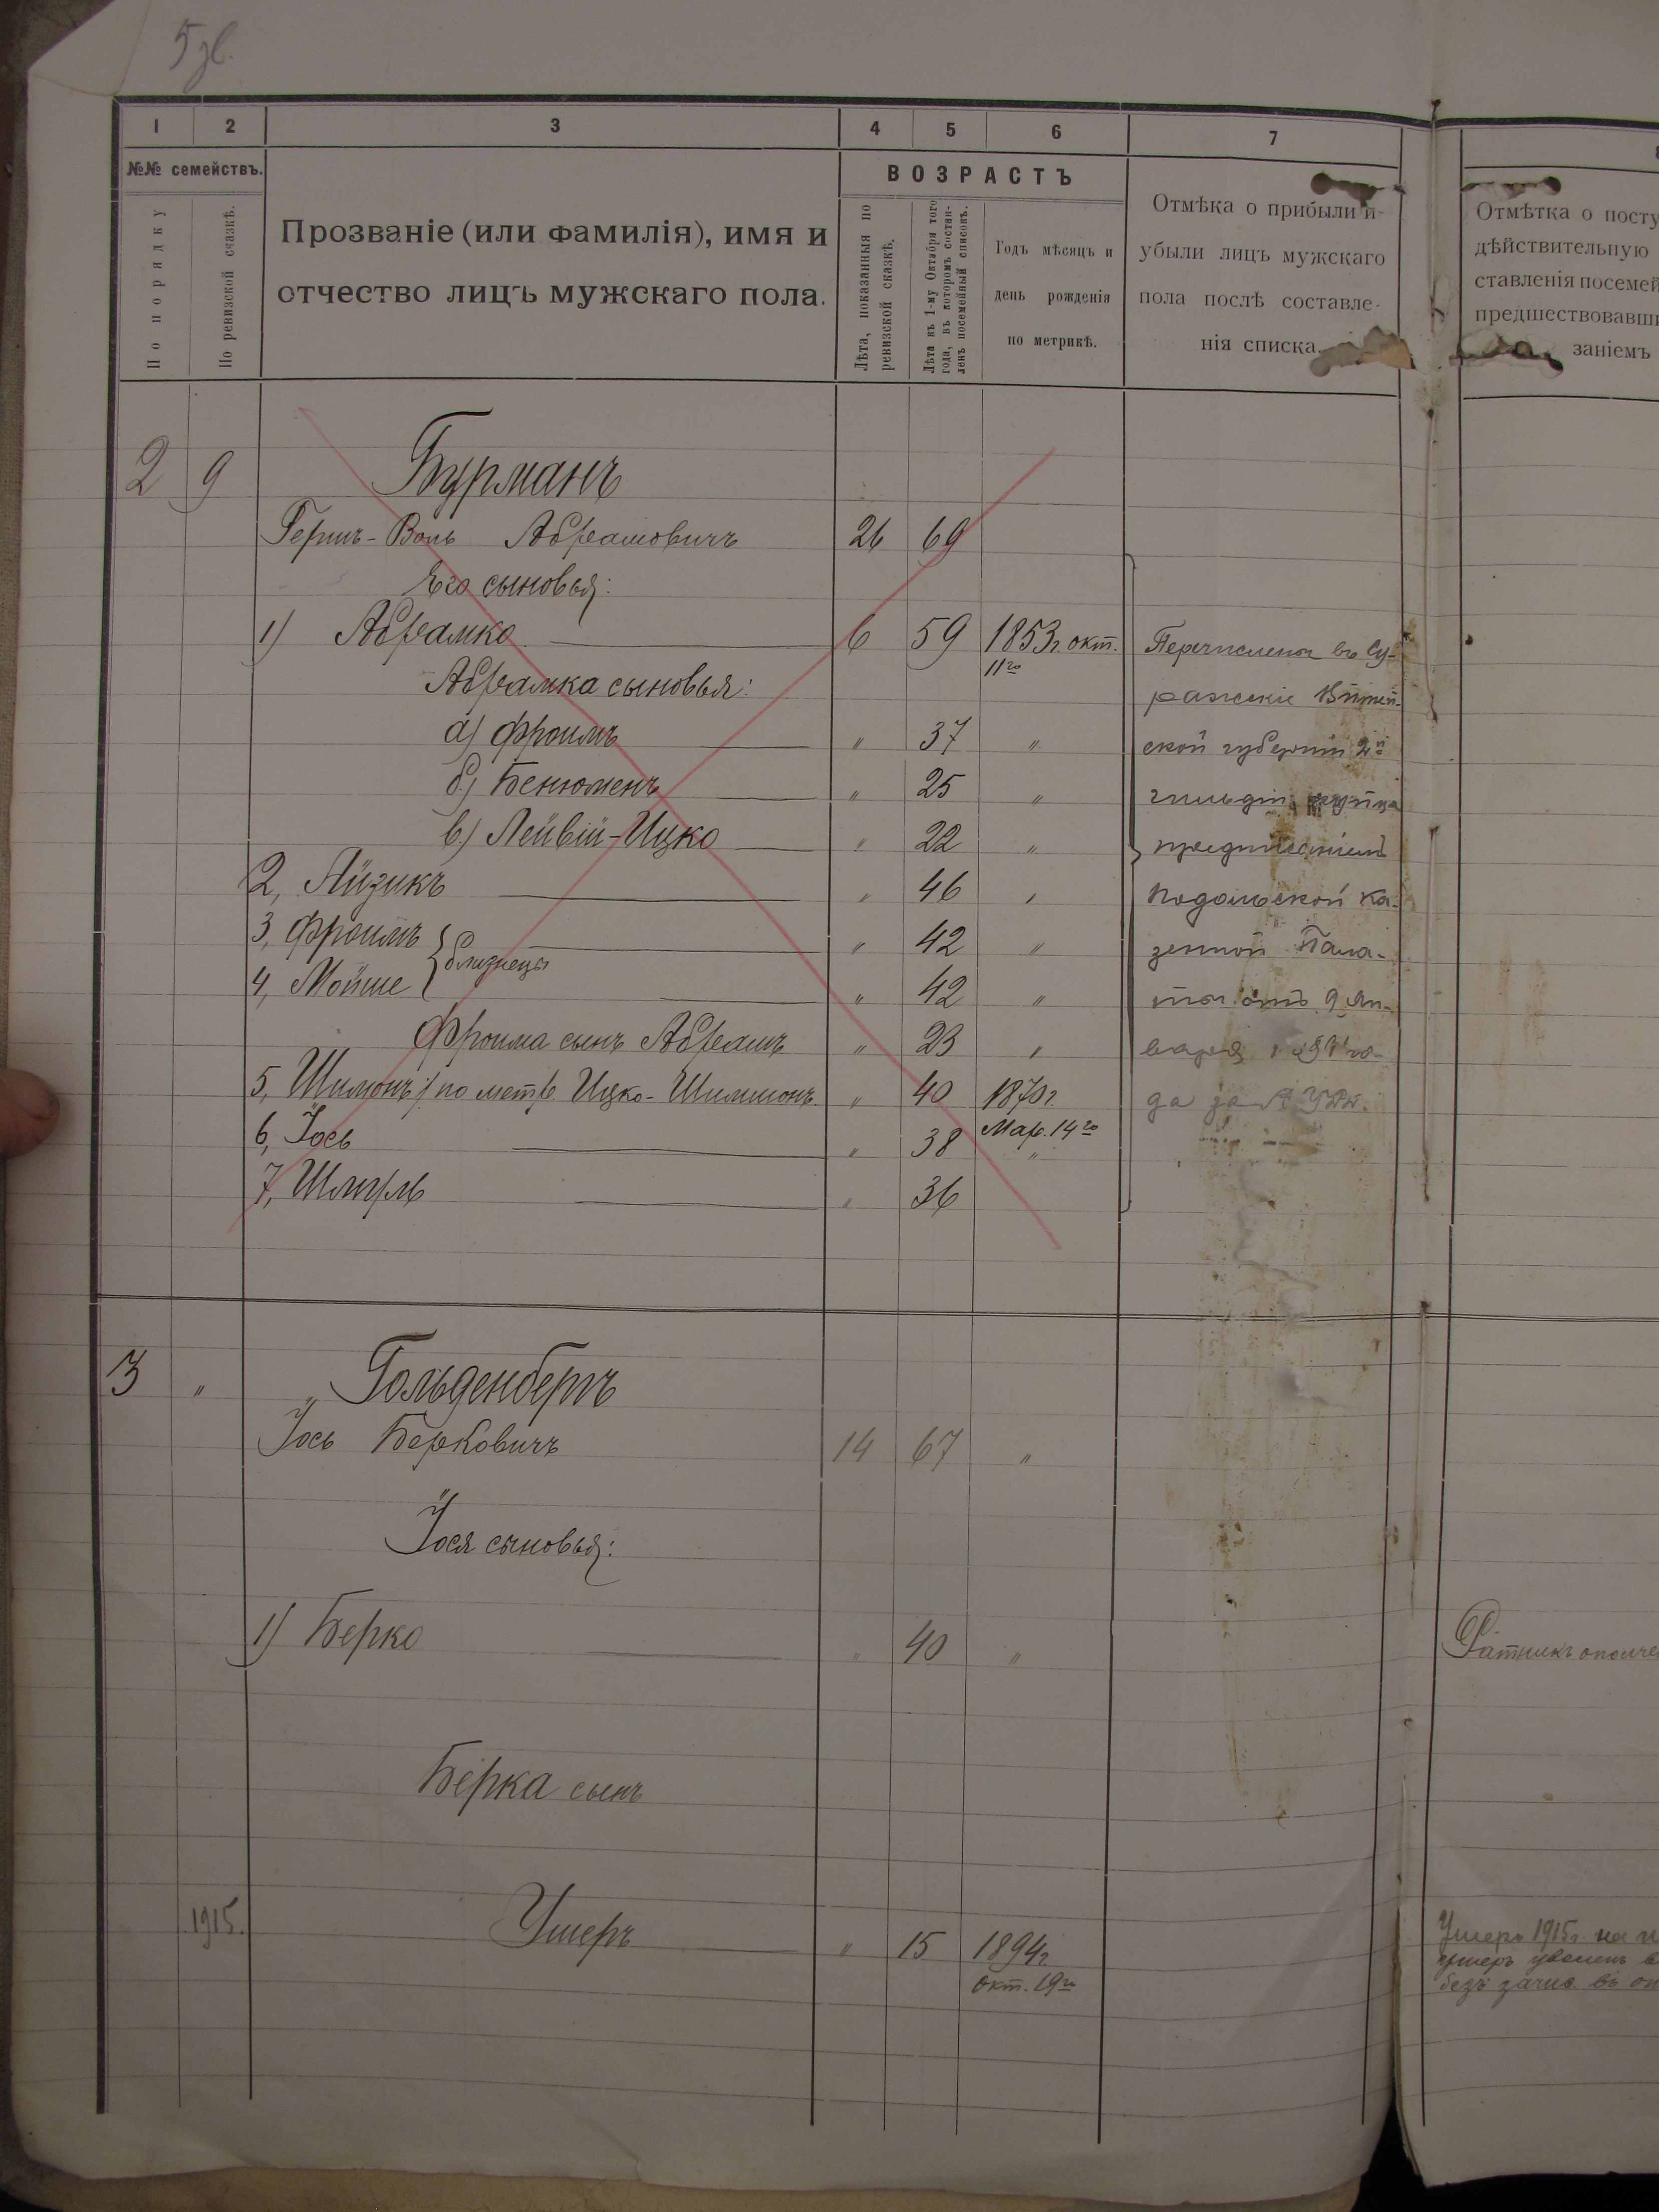 5 зв.
1 2 3 4 5 6 7
№№ семействъ.
По порядку
По ревизской сказкѣ.
Прозваніе (или фамилія), имя и
отчество лицъ мужскаго пола.
ВОЗРАСТЪ
Лѣта, показанныя по
ревизской сказкѣ.
Лѣта къ 1-му Октября того
года, въ которомъ состав-
ленъ посемейный списокъ.
Годъ мѣсяцъ и
день рожденія
по метрикѣ.
Отмѣка о прибыли и
убыли лицъ мужскаго
пола послѣ составле-
нія списка.
Отмѣтка о посту
дѣйствительную
ставленія посемей
предшествовавши
заніемъ
2 9 Бурманъ
Гершъ-Волъ Абрамовичъ 26 69
Его сыновья:
1) Абрамко 6 59 1853г. окт.
11го
Абрамка сыновья:
а) Фроимъ " 37 "
б) Бенюменъ " 25 "
в) Лейвій-Ицко " 22 "
2, Айзикъ " 46 "
3, Фроимъ } близнецы " 42 "
4, Мойше " 42 "
Фроима сынъ Абрамъ " 23 "
5, Шимонъ по метр. Ицко-Шимшонъ " 40 1870г.
Мар. 14го
6, Іось " 38 "
7, Шмуль " 36
Перечислены въ Су-
ражскіе Витеб-
ской губерніи 2й
гильдіи купца
предписаніемъ
Подольской Ка-
зенной Пала-
ты отъ 9 Ян-
варя
да за №
3 " Гольденбергъ
Іось Берковичъ 14 67 "
Іося сыновья:
1) Берко " 40 "
Ратникъ ополче
Берка сынъ
1915. Ушеръ " 15 1894г.
окт. 19го
Ушеръ 1915г. на
уволенъ в
безъ зачис. въ оп